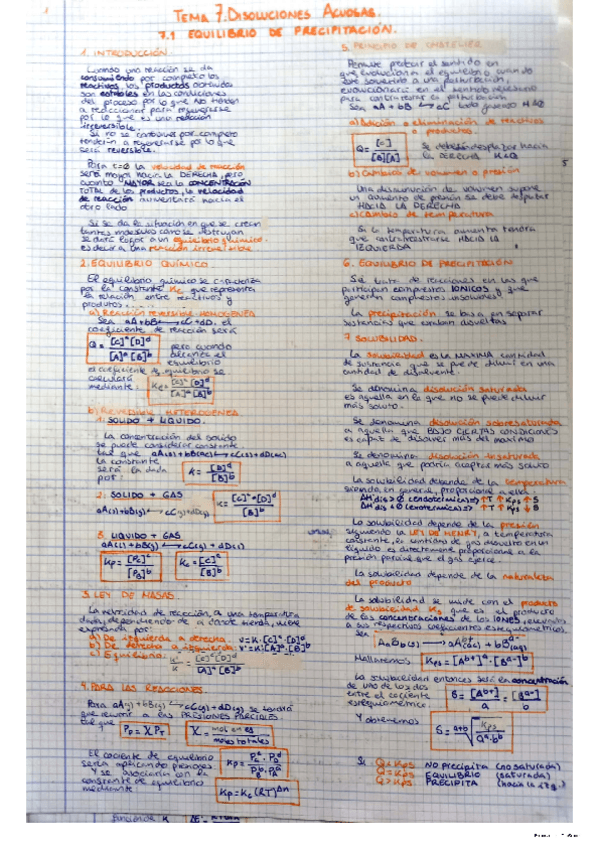 1
TEMA 7. DISOLUCIONES ACUOSAS.
7.1 EQUILIBRIO DE PRECIPITACIÓN.
1. INTRODUCCIÓN
Cuando una reacción se da
consumiendo por completo los
reactivos, los productos obtenidos
son estables en las condiciones
del proceso por lo que no tienden
a reaccionar para regenerarse
por lo que es una reacción
irreversible.
Si no se consumen por completo
tenderán a regenerarse por lo que
será reversible.
Para t=0 la velocidad de reacción
será mayor hacia la DERECHA, pero
cuanto MAYOR sea la CONCENTRACIÓN
TOTAL de los productos, la velocidad
de reacción aumentará hacia el
otro lado
Si se da la situación en que se crean
tantas moléculas como se destruyan
se dará lugar a un equilibrio químico
es decir a una reacción
2. EQUILIBRIO QUÍMICO
El equilibrio químico se
por la constante Kc que representa
la relación entre reactivos y
productos
a) REACCIÓN REVERSIBLE HOMOGÉNEA
Sea aA+bB ⇌ cC+dD. el
coeficiente de reacción será:
Q = [C]^c [D]^d / [A]^a [B]^b
pero cuando
alcanza el
equilibrio
el coeficiente de equilibrio se
calculará
mediante: Kc = [C]^c [D]^d / [A]^a [B]^b
b) REVERSIBLE HETEROGÉNEA
1. SOLIDO + LIQUIDO.
La concentración del sólido
se puede considerar constante.
tal que aA(s)+bB(ac) ⇌ cC(s)+dD(ac)
la constante
será la dada
por: K = [D]^d / [B]^b
2. SOLIDO + GAS
aA(s)+bB(g) ⇌ cC(g)+dD(g)
K = [C]^c [D]^d / [B]^b
3. LIQUIDO + GAS
aA(l)+bB(g) ⇌ cC(g)+dD(l)
Kp = [Pc]^c / [PB]^b
Kc = [C]^c / [B]^b
3. LEY DE MASAS.
La velocidad de reacción, a una temperatura
dada, dependiendo de a donde tienda, viene
expresada por
a) De izquierda a derecha. v = K·[C]^c·[D]^d
b) De derecha a izquierda: v' = K·[A]^a·[B]^b
c) Equilibrio: K'/K = [C]^c [D]^d / [A]^a [B]^b
4. PARA LAS REACCIONES.
Para aA(g)+bB(g) ⇌ cC(g)+dD(g) se tendrá
que recurrir a las PRESIONES PARCIALES
tal que
moles totales
El cociente de equilibrio
sería aplicando presiones
Y se asociaría con la
constante de equilibrio
mediante Kp = Kc (RT)^Δn
5. PRINCIPIO DE CHATELIER
Permite predecir el sentido en
que evoluciona el equilibrio cuando
esté sometido a una perturbación,
evolucionará en el sentido necesario
para contrarrestar la perturbación
Sea aA + bB ⇌ cC
a) Adición o eliminación de reactivos
o productos.
Q = [C] / [B][A]
la DERECHA K≠Q
b) Cambios de volumen o presión
Una disminución de volumen supone
un aumento de presión se debe desplazar
HACIA LA DERECHA
c) Cambios de temperatura
Si la temperatura aumenta tendrá
que contrarrestarse HACIA LA
IZQUIERDA
6. EQUILIBRIO DE PRECIPITACIÓN
Se trata de reacciones en las que
participan compuestos IÓNICOS y que
generan compuestos insolubles
La precipitación se basa en separar
sustancias que estaban disueltas
7. SOLUBILIDAD.
La solubilidad es la MÁXIMA cantidad
de sustancia que se puede diluir en una
cantidad de disolvente.
Se denomina disolución saturada
es aquella en la que no se puede diluir
más soluto.
Se denomina disolución sobresaturada
a aquella que BAJO CIERTAS CONDICIONES
es capaz de disolver más del máximo
Se denomina disolución insaturada
a aquella que podría aceptar más soluto
La solubilidad depende de la temperatura
siendo en general, proporcional a ella:
ΔHdis > 0 (endotérmica) ⇒ ↑T ↑Kps ↑S
ΔHdis < 0 (exotérmica) ⇒ ↑T ↓Kps ↓S
La solubilidad depende de la presión
siguiendo la LEY DE HENRY, a temperatura
constante, la cantidad de gas disuelto en un
líquido es directamente proporcional a la
presión parcial que el gas ejerce.
La solubilidad depende de la naturaleza
del producto
La solubilidad se mide con el producto
de solubilidad Ks que es el producto
de las concentraciones de los IONES, elevados
a sus respectivos coeficientes estequiométricos.
Sea
AaBb(s) ⇌ aA^b+(ac) + bB^a-(ac)
Kps = [A^b+]^a · [B^a-]^b
La solubilidad entonces será la concentración
de uno de los dos
entre el cociente
estequiométrico.
S = [A^b+] / a = [B^a-] / b
Y obtenemos
S = a+b√(Kps / a^a·b^b)
Si Q<Kps NO PRECIPITA (no saturada)
Q=Kps EQUILIBRIO (saturada)
Q>Kps PRECIPITA